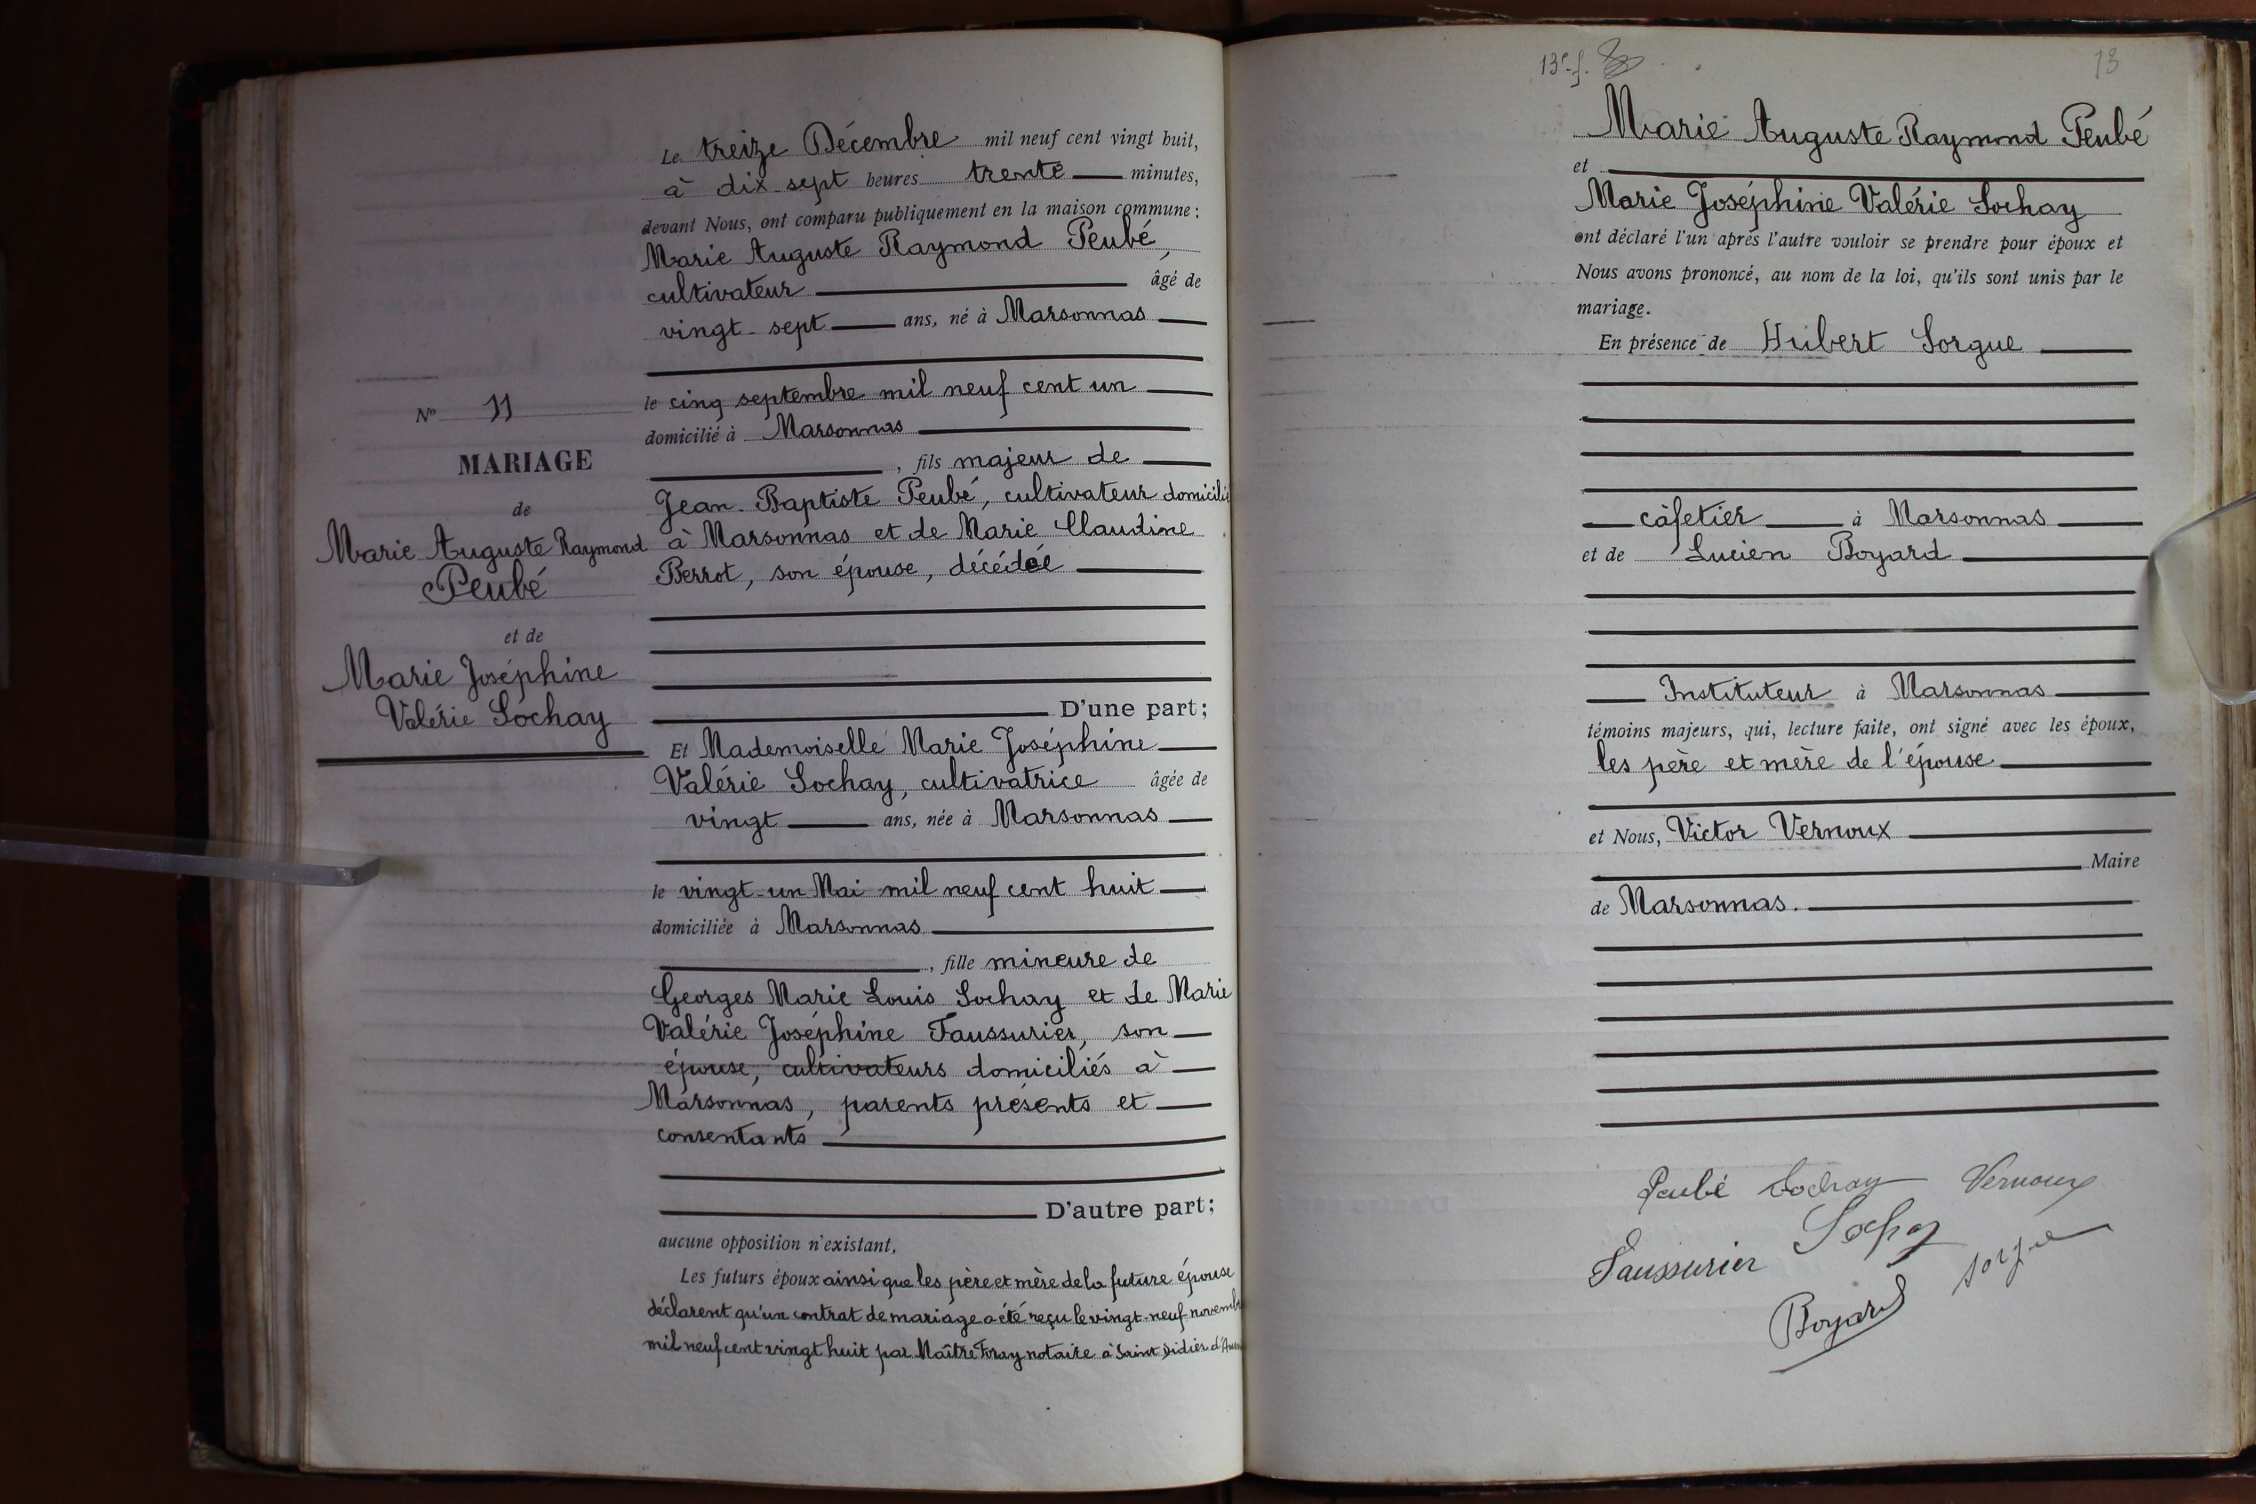 Le treize Décembre mil neuf cent vingt huit,
à dix-sept heures trente minutes,
devant Nous, ont comparu publiquement en la maison commune :
Marie Auguste Raymond Peubé,
cultivateur âgé de
vingt-sept ans, né à Marsonnas
le cinq septembre mil neuf cent un
domicilié à Marsonnas
, fils majeur de
Jean-Baptiste Peubé, cultivateur domicilié
à Marsonnas et de Marie Claudine
Berrot, son épouse, décédée
D'une part;
Et Mademoiselle Marie Joséphine
Valérie Sochay, cultivatrice âgée de
vingt ans, née à Marsonnas
le vingt-un Mai mil neuf cent huit
domiciliée à Marsonnas
, fille mineure de
Georges Marie Louis Sochay et de Marie
Valérie Joséphine Faussurier, son
épouse, cultivateurs domiciliés à
Marsonnas, parents présents et
consentants
D'autre part;
aucune opposition n'existant,
Les futurs époux ainsi que les père et mère de la future épouse
déclarent qu'un contrat de mariage a été reçu le vingt-neuf novembre
mil neuf cent vingt huit par Maître Foray notaire à Saint Didier
No 11
MARIAGE
de
Marie Auguste Raymond
Peubé
et de
Marie Joséphine
Valérie Sochay
13e f.
13
Marie Auguste Raymond Peubé
et
Marie Joséphine Valérie Sochay
ont déclaré l'un après l'autre vouloir se prendre pour époux et
Nous avons prononcé, au nom de la loi, qu'ils sont unis par le
mariage.
En présence de Hubert Sorgue
cafetier à Marsonnas
et de Lucien Boyard
Instituteur à Marsonnas
témoins majeurs, qui, lecture faite, ont signé avec les époux,
les père et mère de l'épouse
et Nous, Victor Vernoux
Maire
de Marsonnas.
Peubé Sochay Vernoux
Faussurier Sochay Sorgue
Boyard